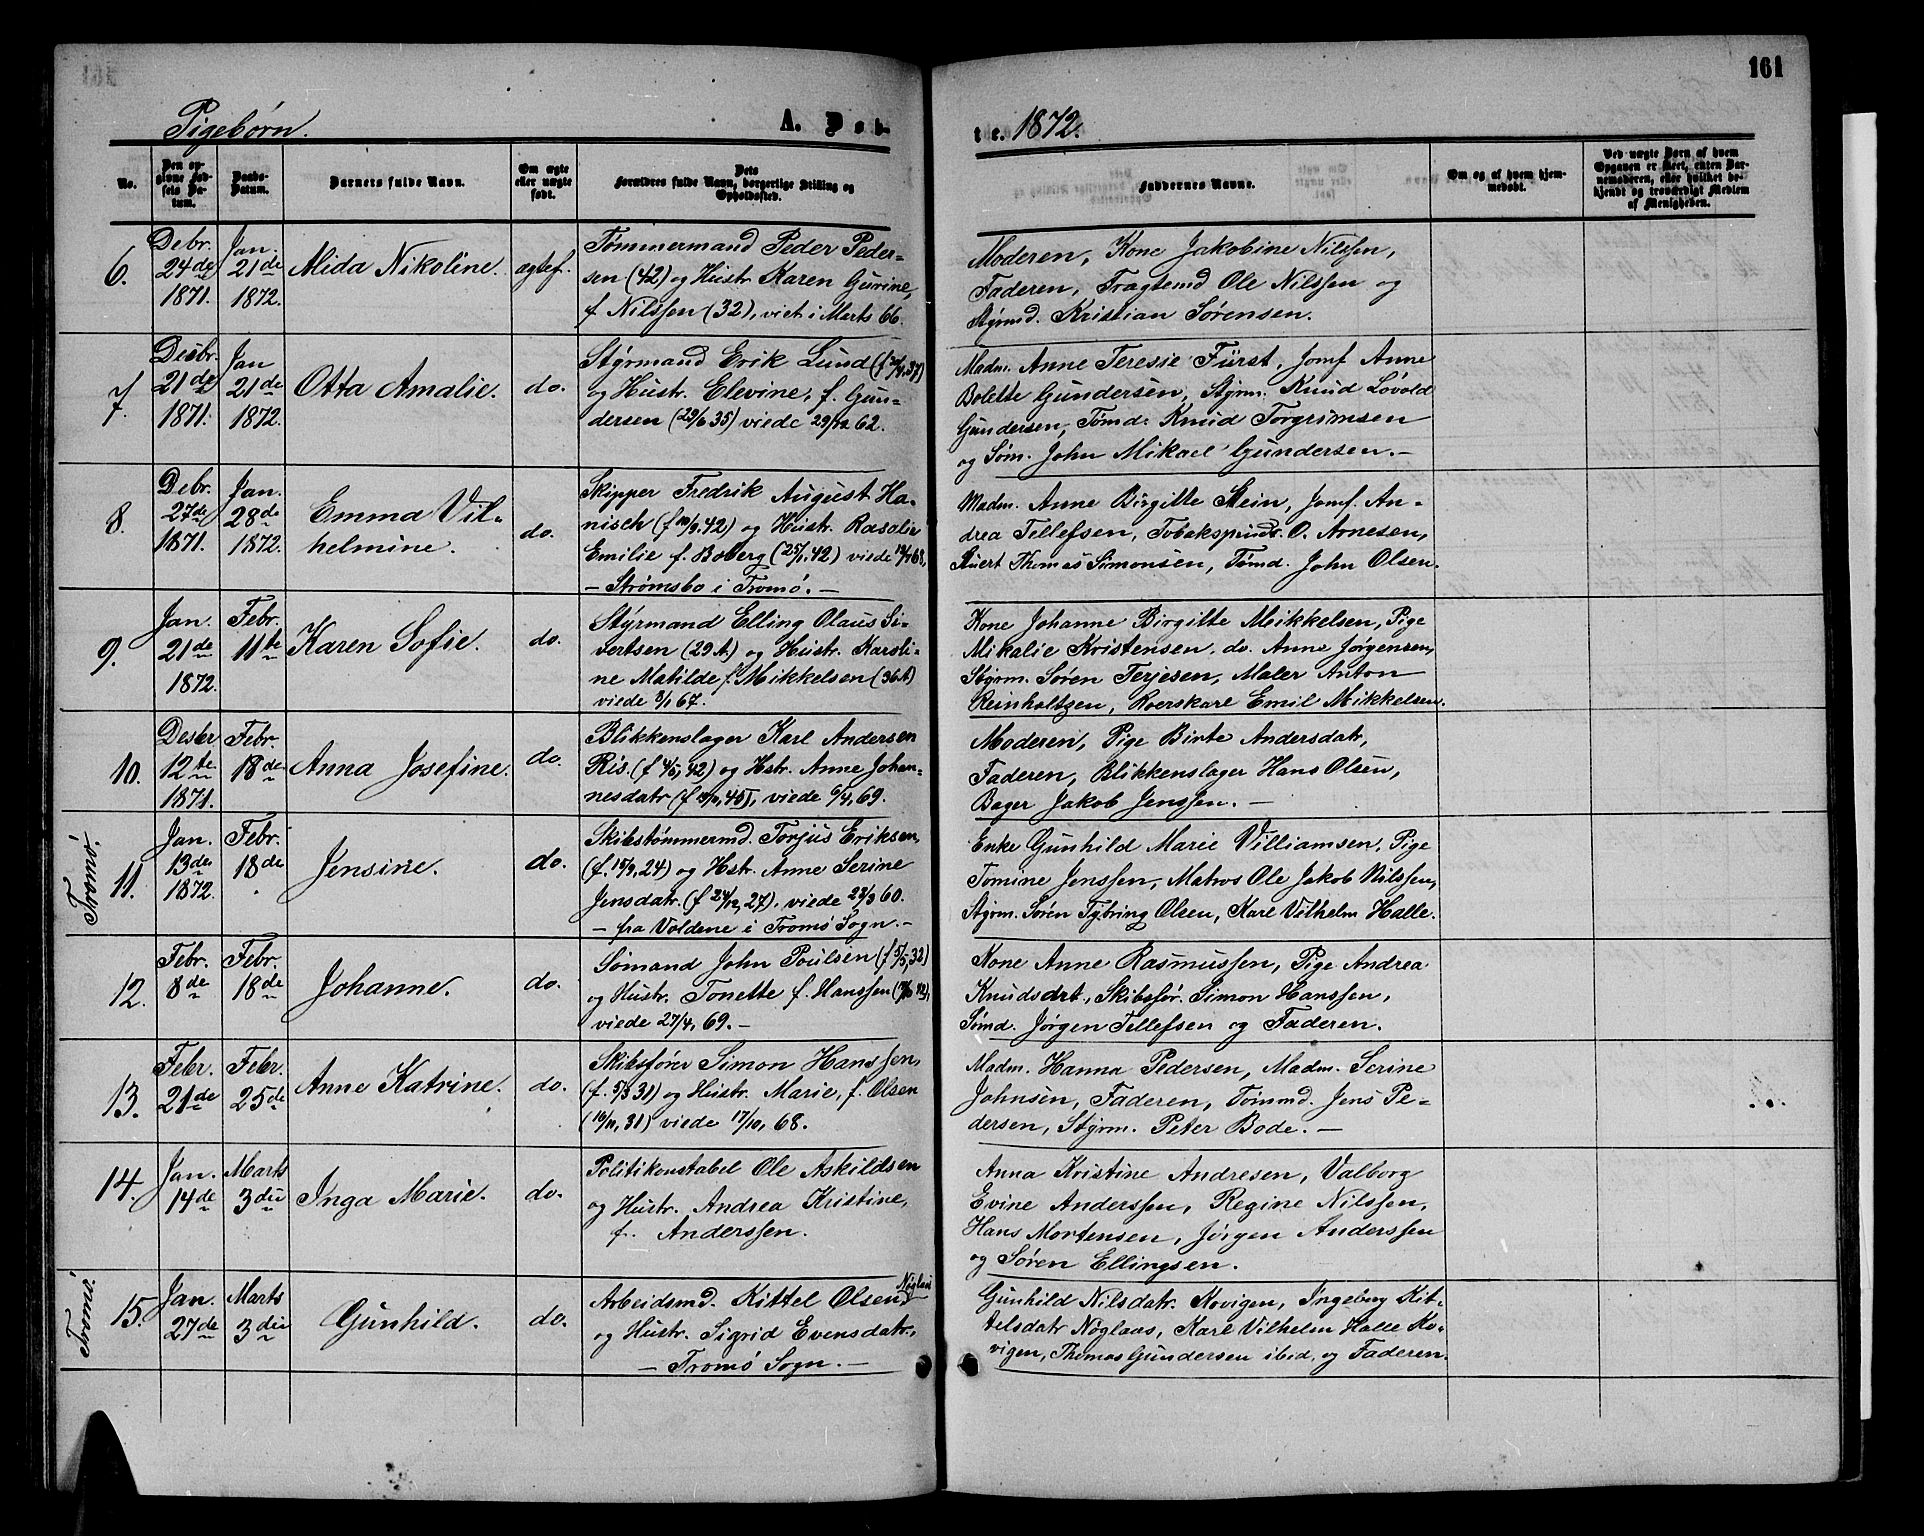 161
Pigebørn.
A. Døb-
te. 1872.
No.
Den op-
givne Fød-
sels Da-
tum.
Daabs-
Datum.
Barnets fulde Navn.
Om ægte
eller uægte
født.
Dets
Forældres fulde Navn, borgerlige Stilling og
Opholdssted.
Faddernes Navne.
Om og af hvem hjem-
medøbt.
Ved uægte Børn af hvem
Opgaven er skeet, enten Bar-
nemoderen, eller hvilket be-
kjendt og troværdigt Medlem
af Menigheden.
6.
Debr.
24de
1871.
Jan.
21de
1872.
Alida Nikoline.
ægtef.
Tømmermand Peder Peder-
sen (42) og Hustr. Karen Gurine,
f. Nilssen (32), viet i Marts 66.
Moderen, Kone Jakobine Nilssen,
Faderen, Fragtemd Ole Nilssen og
Styrmd. Kristian Sørensen.
7.
Desbr.
21de
1871.
Jan
21de
1872.
Otta Amalie.
do.
Styrmand Erik Lund
og Hustr. Elevine, f. Gun-
dersen (29/6 35) viede 29/12 62.
Madm. Anne Teresie Fürst, Jomf. Anne
Bolette Gundersen, Styrm. Knud Løvold
Gundersen, Tømd. Knud Torgrimsen
og Søm. John Mikael Gundersen.
8.
Debr.
27de
1871.
Jan.
28de
1872.
Emma Vil-
helmine.
do.
Skipper Fredrik August Ha-
nisch og Hustr. Rosalie
Emilie f. Boberg (25/1, 42) viede
- Strømsbo i Tromø. -
Madm. Anne Birgitte Stein, Jomf. An-
drea Tellefsen, Tobakspindr. O. Arnesen,
Stuert Thomas Simonsen, Tømd. John Olsen.
9.
Jan.
21de
1872.
Febr.
11te
Karen Sofie.
do.
Styrmand Elling Olaus Si-
vertsen (29 A.) og Hustr. Karoli-
ne Matilde f. Mikkelsen (36 A)
viede 3/1 67.
Kone Johanne Birgitte Mikkelsen, Pige
Mikalie Kristensen, do. Anne Jørgensen,
Styrm. Søren Terjesen, Maler Anton
Reinholtzen, Roerskarl Emil Mikkelsen.
10.
Desbr
12te
1871.
Febr.
18de
Anna Josefine.
do.
Blikkenslager Karl Andersen
Ris. (f 4/5, 42) og Hstr. Anne Johan-
nesdatr viede 6/4, 69.
Moderen, Pige Birte Andersdatr,
Faderen, Blikkenslager Hans Olsen,
Bager Jakob Jenssen. -
Tromø.
11.
Jan.
13de
1872.
Febr.
18de
Jensine.
do.
Skibstømmermd. Torjus Eriksen,
(f. 15/9, 24) og Hstr. Anne Serine
Jensdatr. (f 24/12, 27), viede 23/9 60.
- fra Voldene i Tromø Sogn. -
Enke Gunhild Marie Villiamsen, Pige
Tomine Jenssen, Matros Ole Jakob Nilssen,
Styrm. Søren Tybring Olsen, Karl Vilhelm Halle.
12.
Febr.
8de
Febr.
18de
Johanne.
do.
Sømand John Poulsen (f 5/5, 32)
og Hustr. Tonette f. Hanssen
viede 27/4, 69. -
Kone Anne Rasmussen, Pige Andrea
Knudsdrt., Skibsfør. Simon Hanssen,
Sømd. Jørgen Tellefsen og Faderen.
13.
Febr.
21de
Febr.
25de
Anne Katrine.
do.
Skibsfører Simon Hanssen,
(f. 5/3 31) og Hustr. Marie, f. Olsen
(19/11, 31) viede 17/10, 68.
Madm. Hanna Pedersen, Madm. Serine
Johnsen, Faderen, Tømmd. Jens Pe-
dersen, Styrm. Peter Bode. -
14.
Jan.
14de
Marts
3die
Inga Marie.
do.
Politikonstabel Ole Askildsen
og Hustr. Andrea Kristine,
f. Anderssen.
Anna Kristine Andresen, Valborg
Evine Anderssen, Regine Nilssen,
Hans Mortensen, Jørgen Anderssen
og Søren Ellingsen.
Tromø.
15.
Jan.
27de
Marts
3die
Gunhild.
do.
Arbeidsmd. Kittel Olsen Nøglaas
og Hustr. Sigrid Evensdatr.,
- Tromø Sogn. -
Gunhild Nilsdatr. Kovigen, Ingeborg Kit-
telsdatr Nøglaas, Karl Vilhelm Halle Ko-
vigen, Thomas Gundersen ibid. og Faderen.